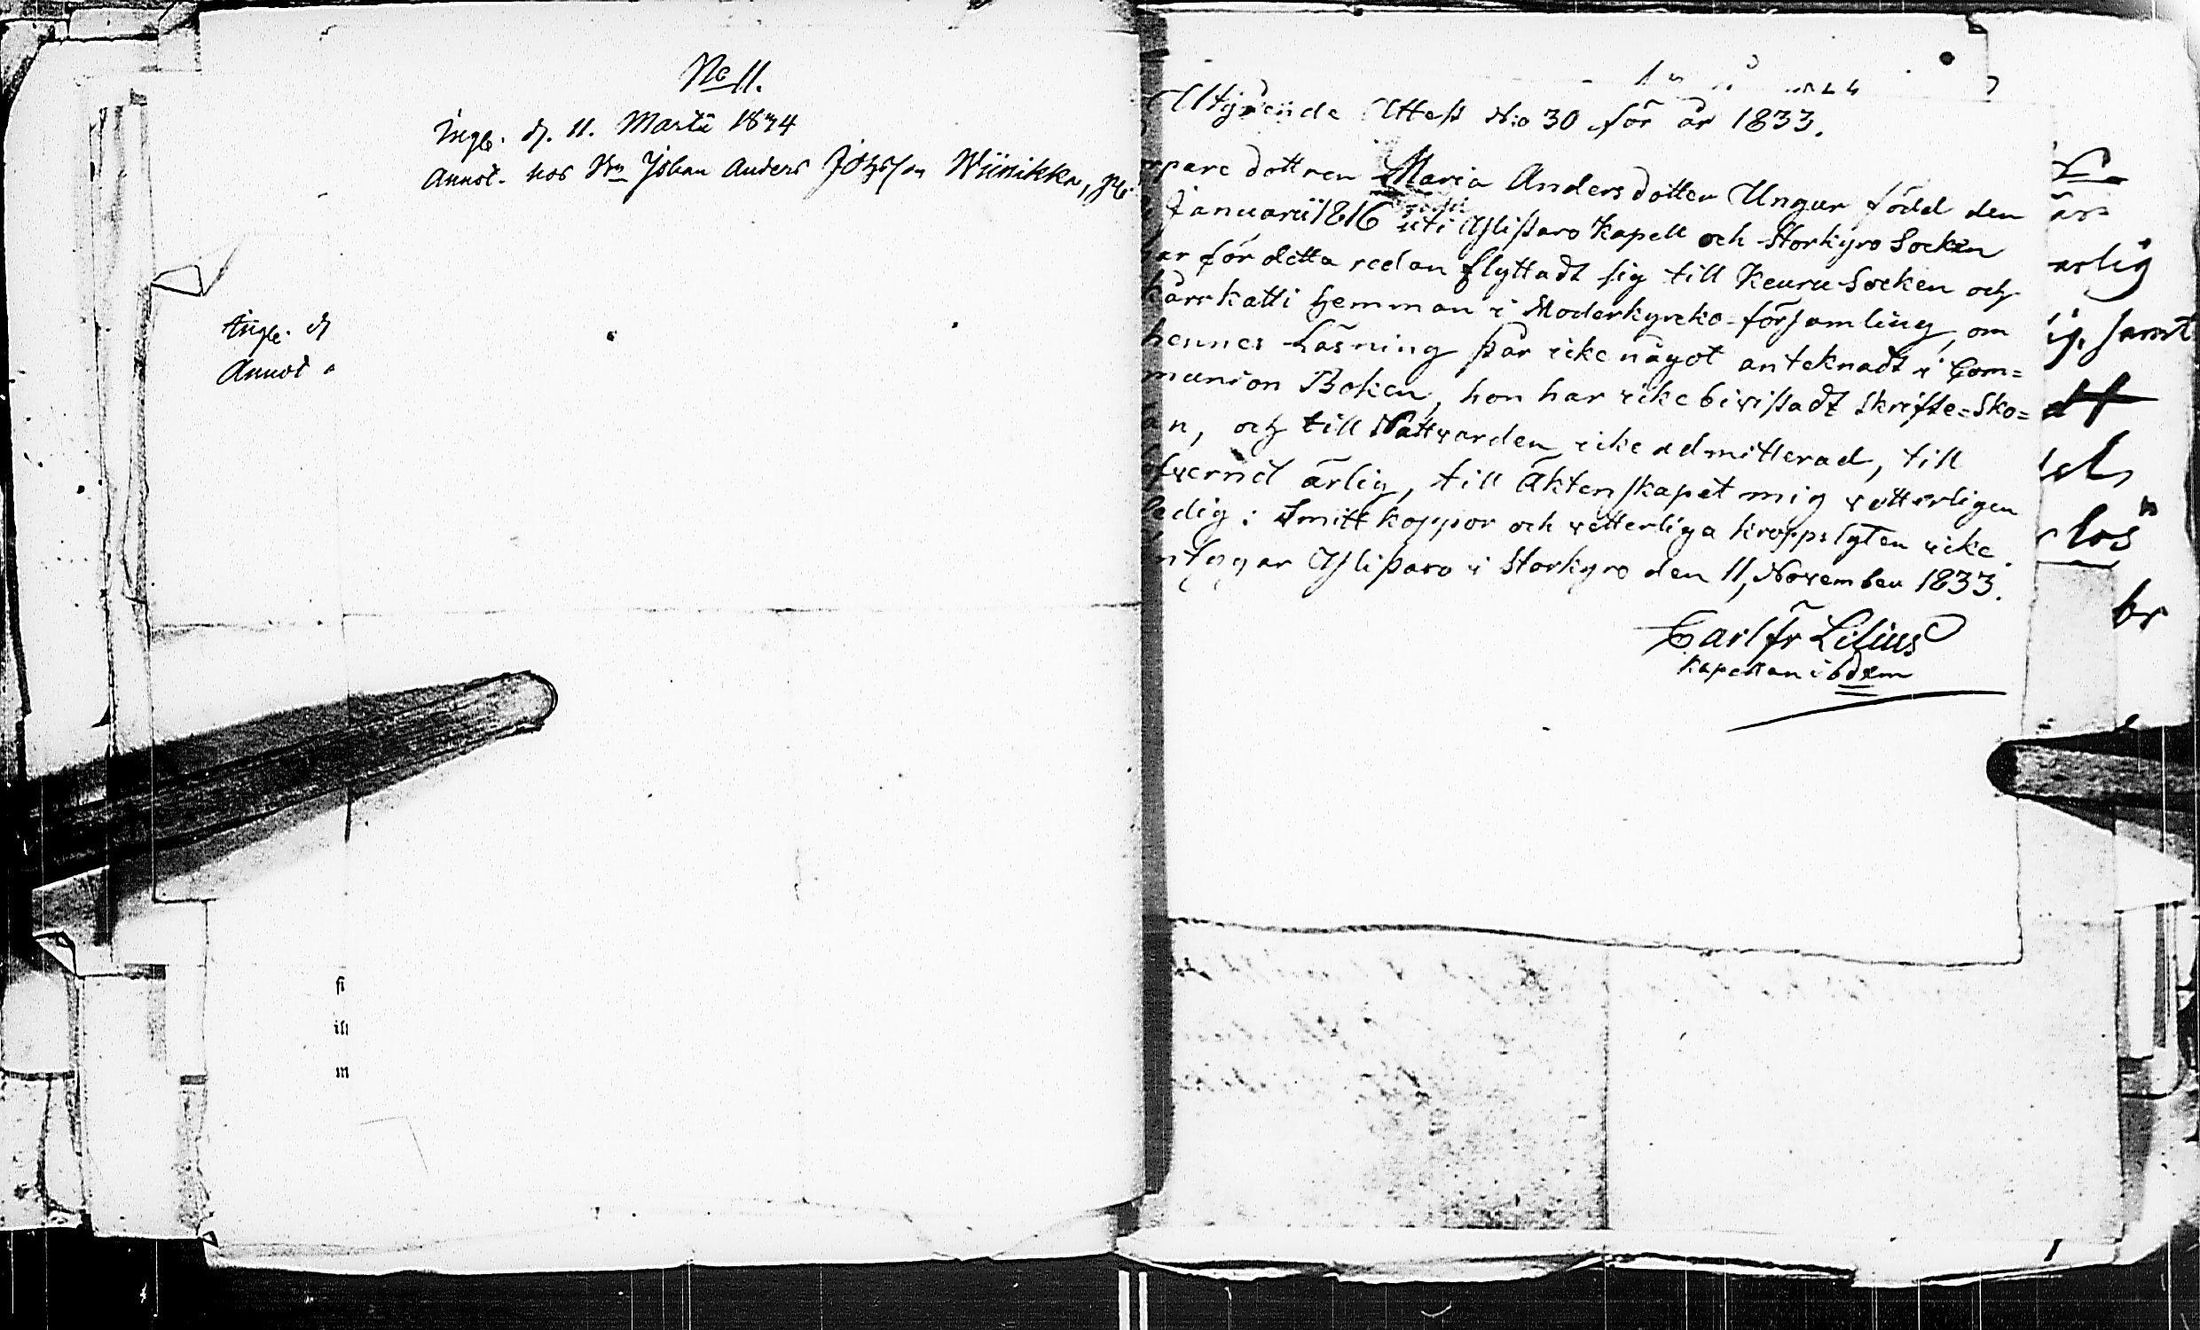 No 11.
Ingb. d. 11. Martii 1834
Annot. hos Bn Johan Anders Wiinikka,
Ingb. d
Annot
fi
ill
m
Utgående Attest N:o 30 för år 1833.
pare dottren Maria Anders dotter Ungar född den
Januarii 1816 uti Ylistaro Kapell och Storkyro Socken
ar för detta redan flyttadt sig till Keuru Socken och
Kärrkatti hemman i Moderkyrko-församling, om
hennes Läsning står icke något anteknadt i Com=
munion Boken, hon har icke biwistadt Skrifte=Sko=
an, och till Nattwarden icke admitterad, till
fwernd ärlig, till Äktenskapet mig wetterligen
ledig: Smittkoppor och wetterliga kroppslyten icke
Ylistaro i Storkyro den 11, November 1833.
Carl Fr Lilius
Kapellan ibdem
är
arlig
samt
lös
br